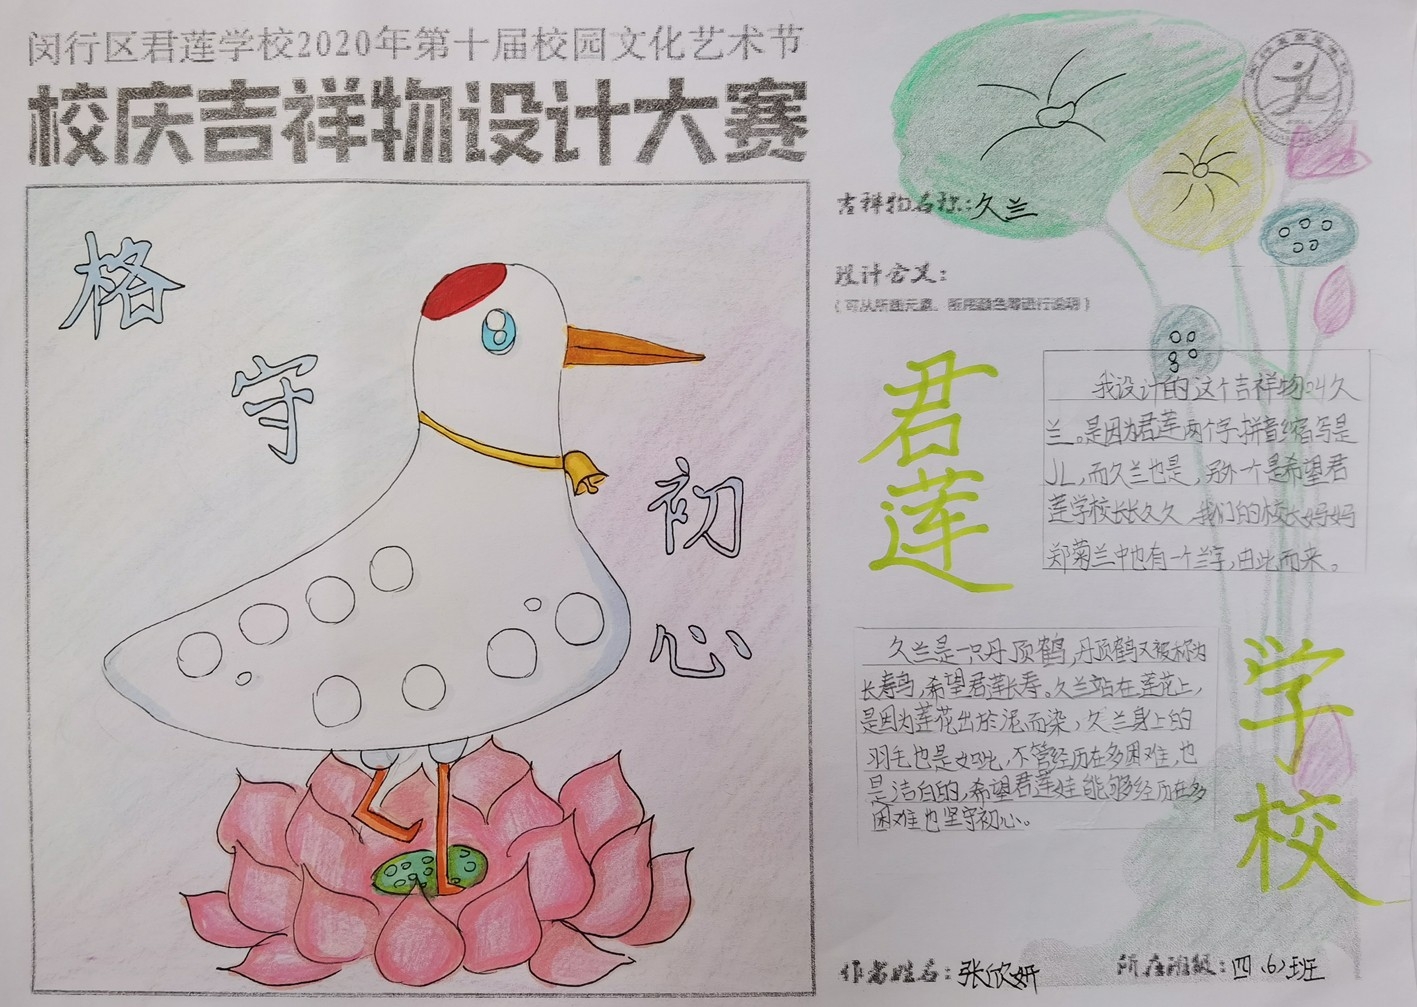 闵行区君莲学校2020年第十届校园文化艺术节
校庆吉祥物设计大赛
格
守
初
心
吉祥物名称:久兰
设计含义:
(可从所选元素、所用颜色等进行说明)
君莲
学校
我设计的这个吉祥物叫久
兰。是因为君莲两个字拼音缩写是
JL,而久兰也是,另外一个是希望君
莲学校长长久久,我们的校长妈妈
郑菊兰中也有一个兰字,由此而来。
久兰是一只丹顶鹤,丹顶鹤又被称为
长寿鸟,希望君莲长寿。久兰站在莲花上,
是因为莲花出於泥而染,久兰身上的
羽毛也是如此,不管经历在多困难,也
是洁白的,希望君莲娃能够经历在多
困难也坚守初心。
作者姓名:张欣妍
所在班级:四(6)班